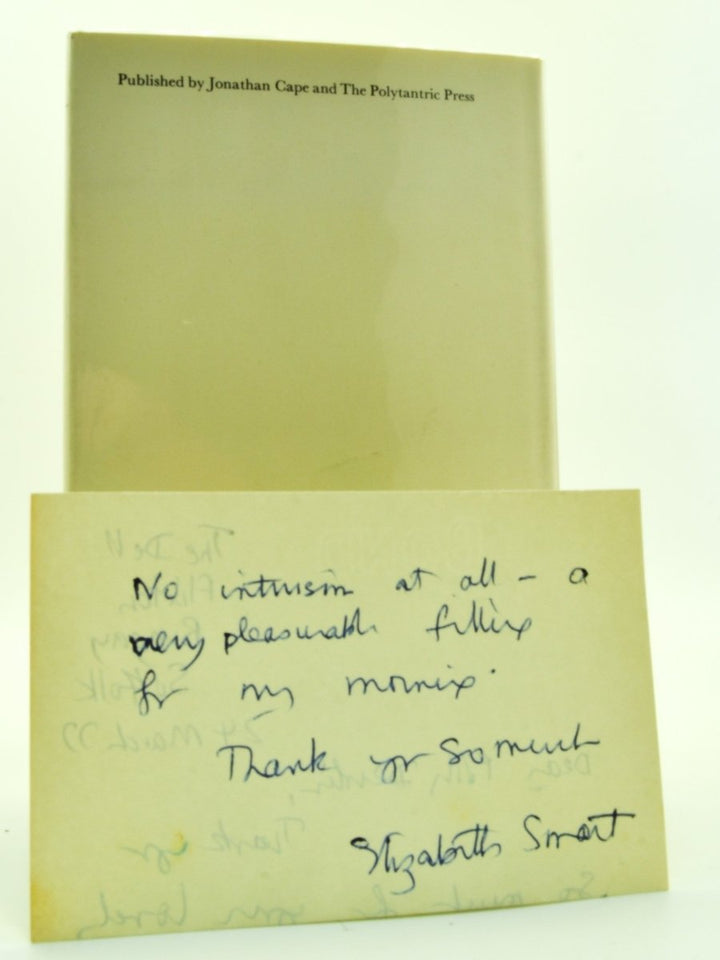 Published by Jonathan Cape and The Polytantric Press
No intrusion at all – a
very pleasurable filling
for my morning.
Thank you so much
Elizabeth Smart